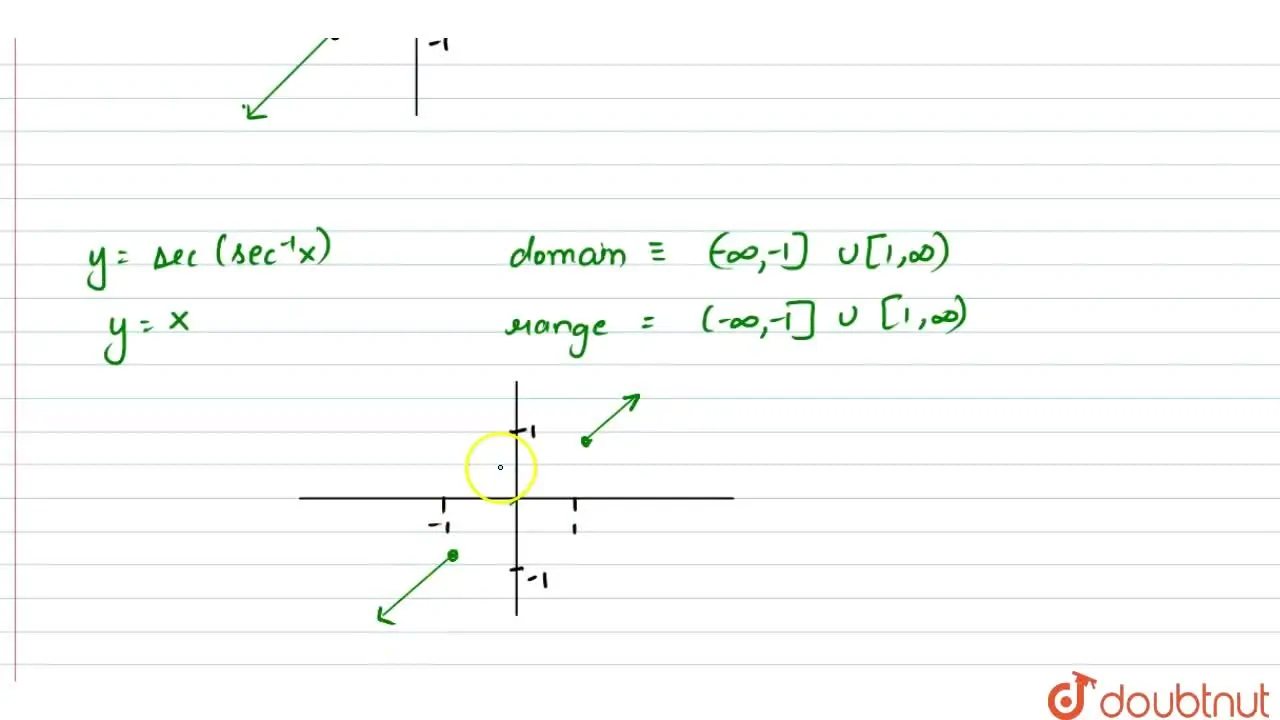 -1
y = sec (sec⁻¹x) domain ≡ (-∞,-1] ∪ [1,∞)
y = x range = (-∞,-1] ∪ [1,∞)
-1
-1 1
-1
doubtnut